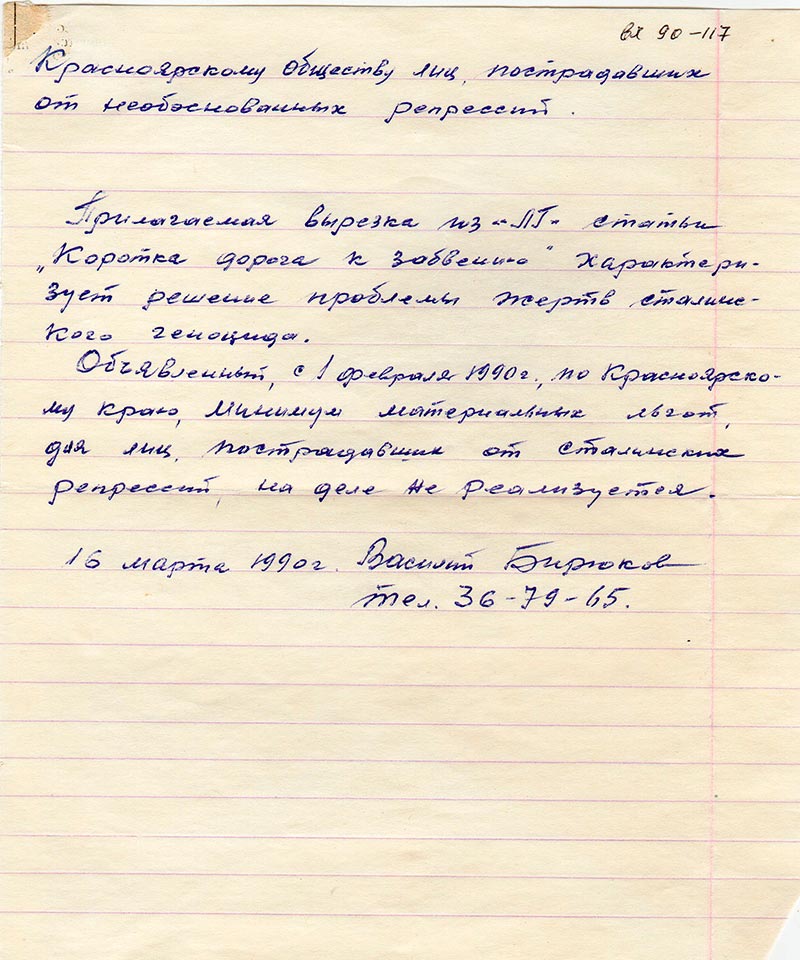 вх 90-117
Красноярскому обществу лиц, пострадавших
от необоснованных репрессий.
Прилагаемая вырезка из «ЛГ» статьи
„Коротка дорога к забвению" характери-
зует решение проблемы жертв сталинс-
кого геноцида.
Объявленный, с 1 февраля 1990г., по Красноярско-
му краю, минимум материальных льгот,
для лиц, пострадавших от сталинских
репрессий, на деле не реализуется.
16 марта 1990г. Василий Бирюков
тел. 36-79-65.